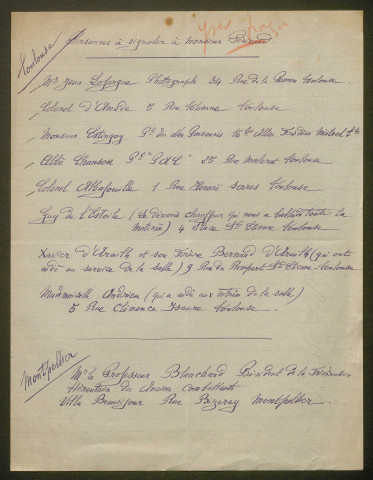 Toulouse
Personnes à signaler à Monsieur
Mr Jean Lafargue Photographe 34 Rue de la Toulouse
Colonel d'Amade 5 Rue Toulouse
Monsieur Pt du des 16 bis Allée Frédéric Mistral
Abbé Chanson Pt "P d L" 25 Rue Toulouse
Colonel Albafouille 1 Rue Honoré Serres Toulouse
Guy de l'Estoile (Le dévoué chauffeur qui nous a toute la
matinée) 4 Place St Etienne Toulouse
Xavier d' et son Frère Bernard d' (qui ont
aidé au service de la salle) 9 Rue du Rempart St Etienne - Toulouse
Mademoiselle Andrieu (qui a aidé aux de la salle)
5 Rue Clémence Isaure Toulouse.
Montpellier
Mr le Professeur Blanchard Président de la
des Anciens Combattants
Villa Beauséjour Rue Montpellier.